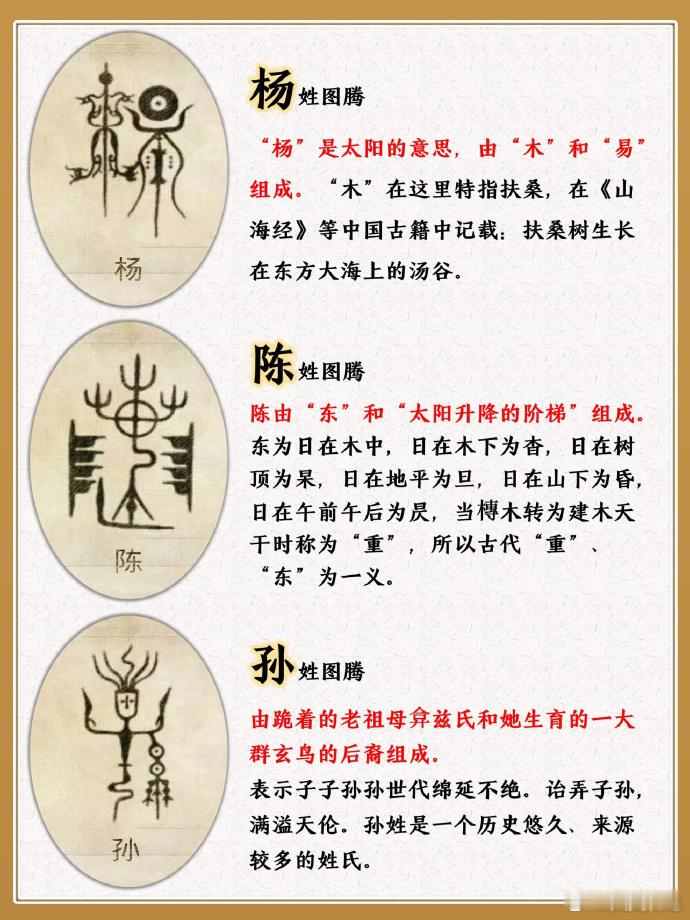 杨姓图腾
“杨”是太阳的意思，由“木”和“易”
组成。“木”在这里特指扶桑，在《山
海经》等中国古籍中记载：扶桑树生长
在东方大海上的汤谷。
杨
陈姓图腾
陈由“东”和“太阳升降的阶梯”组成。
东为日在木中，日在木下为杳，日在树
顶为杲，日在地平为旦，日在山下为昏，
日在午前午后为昃，当榑木转为建木天
干时称为“重”，所以古代“重”、
“东”为一义。
陈
孙姓图腾
由跪着的老祖母弇兹氏和她生育的一大
群玄鸟的后裔组成。
表示子子孙孙世代绵延不绝。诒弄子孙，
满溢天伦。孙姓是一个历史悠久、来源
较多的姓氏。
孙